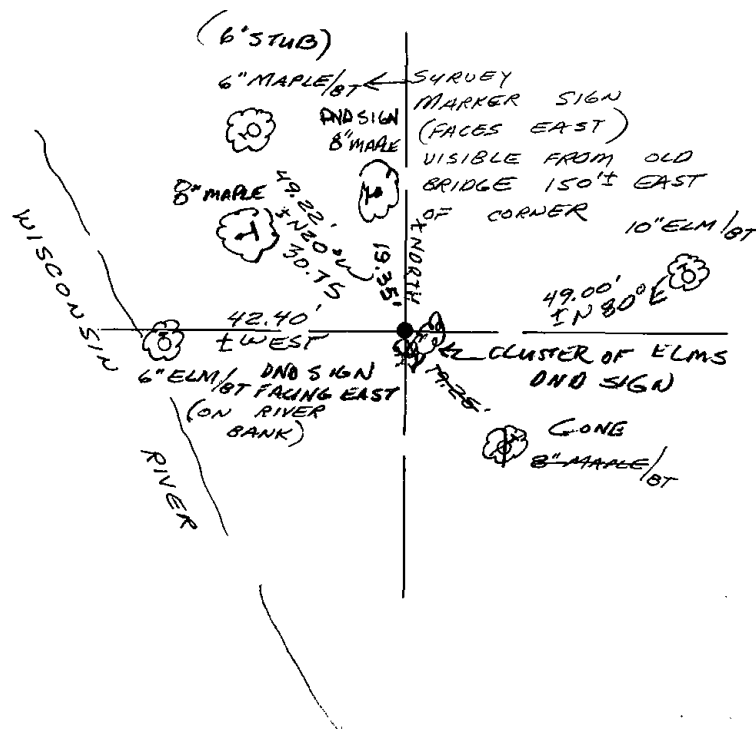 (6' STUB)
6" MAPLE/BT
SURVEY
MARKER SIGN
(FACES EAST)
VISIBLE FROM OLD
BRIDGE 150'± EAST
OF CORNER
DND SIGN
8" MAPLE
8" MAPLE
49.22'
± N20°W
30.75
19.35'
± NORTH
10" ELM/BT
49.00'
± N 80° E
WISCONSIN
RIVER
42.40'
± WEST
6" ELM/BT DND SIGN
FACING EAST
(ON RIVER
BANK)
CLUSTER OF ELMS
DND SIGN
19.25'
GONE
8" MAPLE/BT